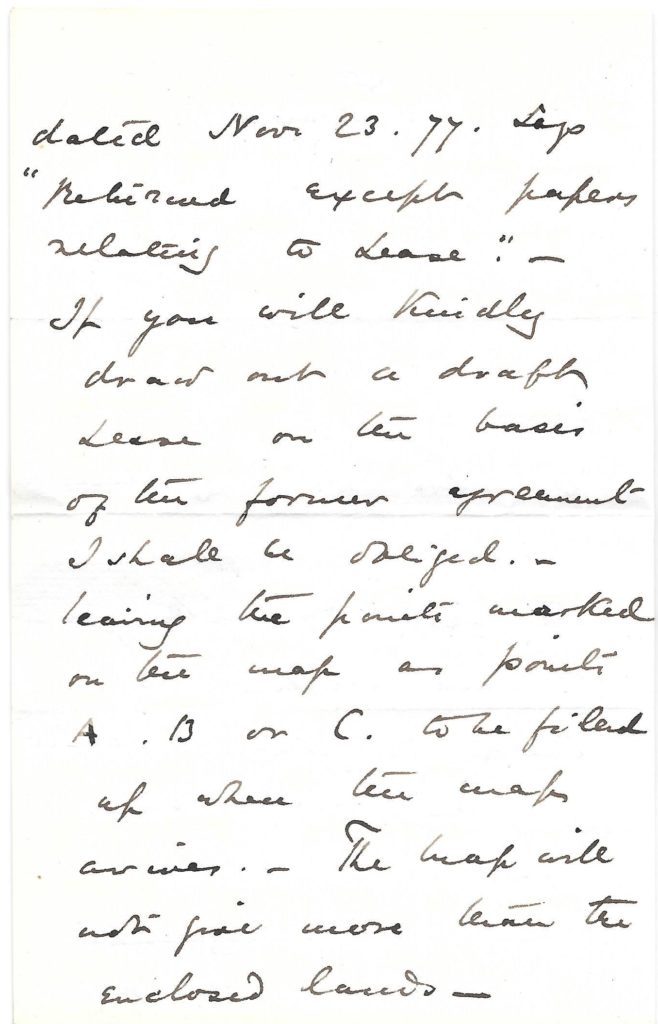 dated Nov 23. 77. Says
"Returned except papers
relating to Lease". —
If you will Kindly
draw out a draft
Lease on the basis
of the former agreement
I shall be obliged. —
leaving the points marked
on the map as points
A. B or C. to be filled
up when the map
arrives. — The map will
not give more than the
enclosed lands —